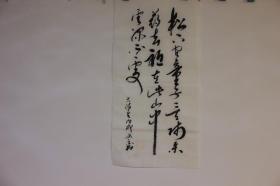 松下問童子言師采
藥去祇在此山中
雲深不知處